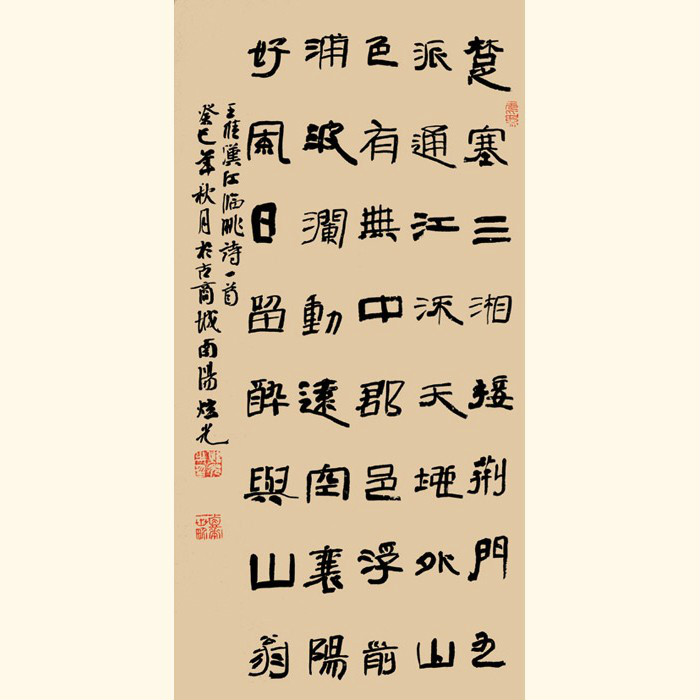 楚塞三湘接荆門九
派通江流天地外山
色有無中郡邑浮前
浦波瀾動遠空襄陽
好風日留醉與山翁
王維漢江临眺詩一首
癸巳年秋月於古商城南陽炫光